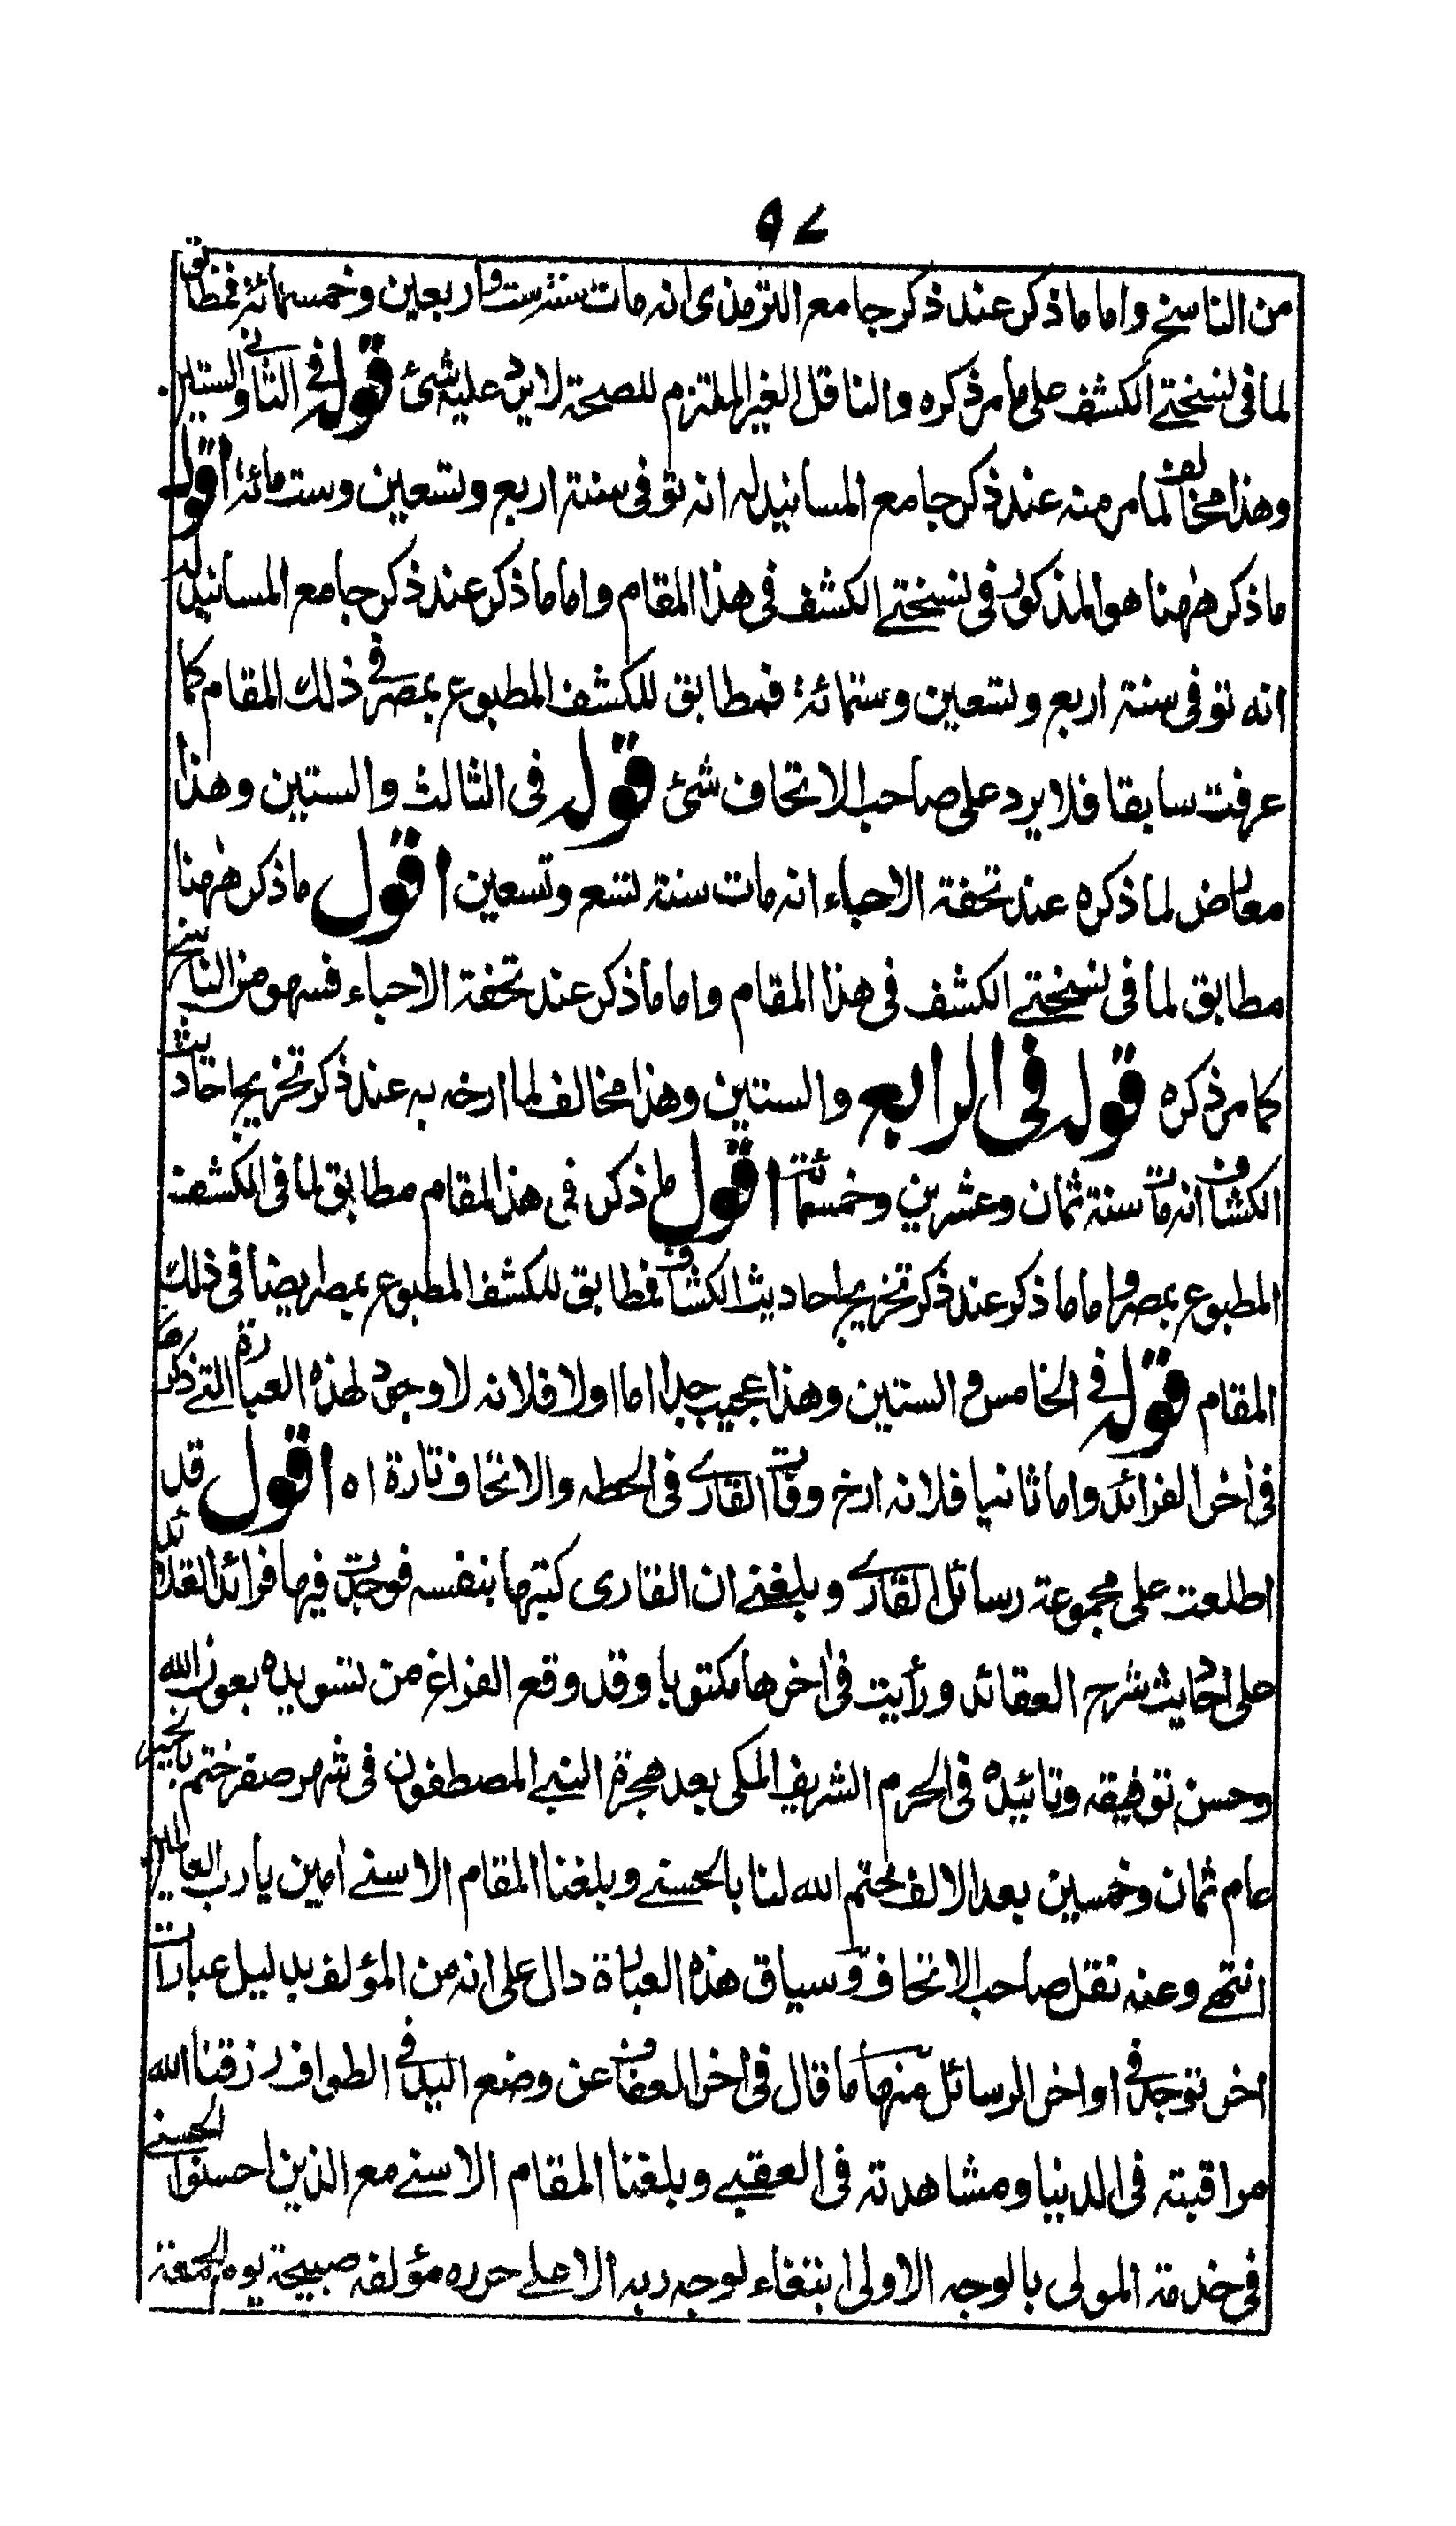 ۹۷
من الناسخ واما ما ذكر عند ذكر جامع الترمذى انه مات سنة ست واربعين وخمسمائة فمطابق
لما فى نسختے الكشف على ما مر ذكره والناقل الغير الملتزم للصحة لا يرد عليه شئ قوله فى الثانى والستين
وهذا مخالف لما مر منه عند ذكر جامع المسانيد له انه توفى سنة اربع وتسعين وست مائة اقول
ما ذكر ههنا هو المذكور فى نسختے الكشف فى هذا المقام واما ما ذكر عند ذكر جامع المسانيد له
انه توفى سنة اربع وتسعين وستمائة فمطابق للكشف المطبوع بمصر فى ذلك المقام كما
عرفت سابقا فلا يرد على صاحب الاتحاف شئ قوله فى الثالث والستين وهذا
معارض لما ذكره عند تحفة الاحباء انه مات سنة تسع وتسعين اقول ما ذكر ههنا
مطابق لما فى نسختے الكشف فى هذا المقام واما ما ذكر عند تحفة الاحباء فسهو من الناسخ
كما مر ذكره قوله فى الرابع والستين وهذا مخالف لما ارخه به عند ذكر تخريج احاديث
الكشاف انه مات سنة ثمان وعشرين وخمسمائة اقول ما ذكر فى هذا المقام مطابق لما فى الكشف
المطبوع بمصر واما ما ذكر عند ذكر تخريج احاديث الكشاف فمطابق للكشف المطبوع بمصر ايضا فى ذلك
المقام قوله فى الخامس والستين وهذا عجيب جدا اما اولا فلانه لا وجود لهذه العبارة التے ذكرها
فى اخر الفرائد واما ثانيا فلانه ارخ وفات القارى فى الحطه والاتحاف تارة اه اقول قد
اطلعت على مجموعة رسائل القارى وبلغنے ان القارى كتبها بنفسه فوجدت فيها فرائد القلائد
على احاديث شرح العقائد ورأيت فى اخرها مكتوبا وقد وقع الفراغ من تسويده بعون الله
وحسن توفيقه وتائيده فى الحرم الشريف المكى بعد هجرة النبے المصطفوى فى شهر صفر ختم بالخير
عام ثمان وخمسين بعد الالف ختم الله لنا بالحسنے وبلغنا المقام الاسنے امين يا رب العالمين
انتهے وعنه نقل صاحب الاتحاف وسياق هذه العبارة دال على انه من المؤلف بدليل عبارات
اخر توجد فى اواخر الرسائل منها ما قال فى اخر العفاف عن وضع اليد فى الطواف رزقنا الله
مراقبته فى الدنيا ومشاهدته فى العقبے وبلغنا المقام الاسنے مع الذين احسنوا الحسنے
فى خدمة المولى بالوجه الاولى ابتغاء لوجه ربه الاعلے حرره مؤلفه صبيحة يوم الجمعة